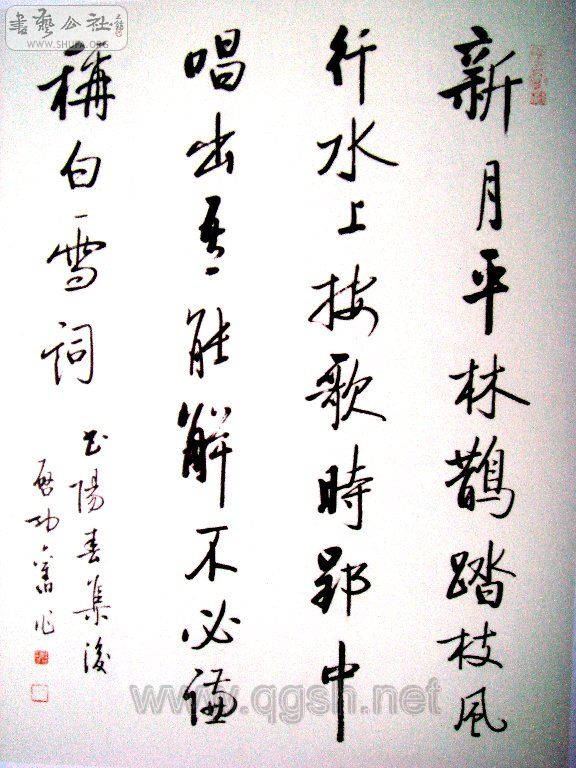 書藝公社
WWW.SHUFA.ORG
新月平林鵲踏枝風
行水上按歌時郢中
唱出吾能解不必謙
稱白雪詞
書陽春集後
啓功舊作
www.qgsh.net